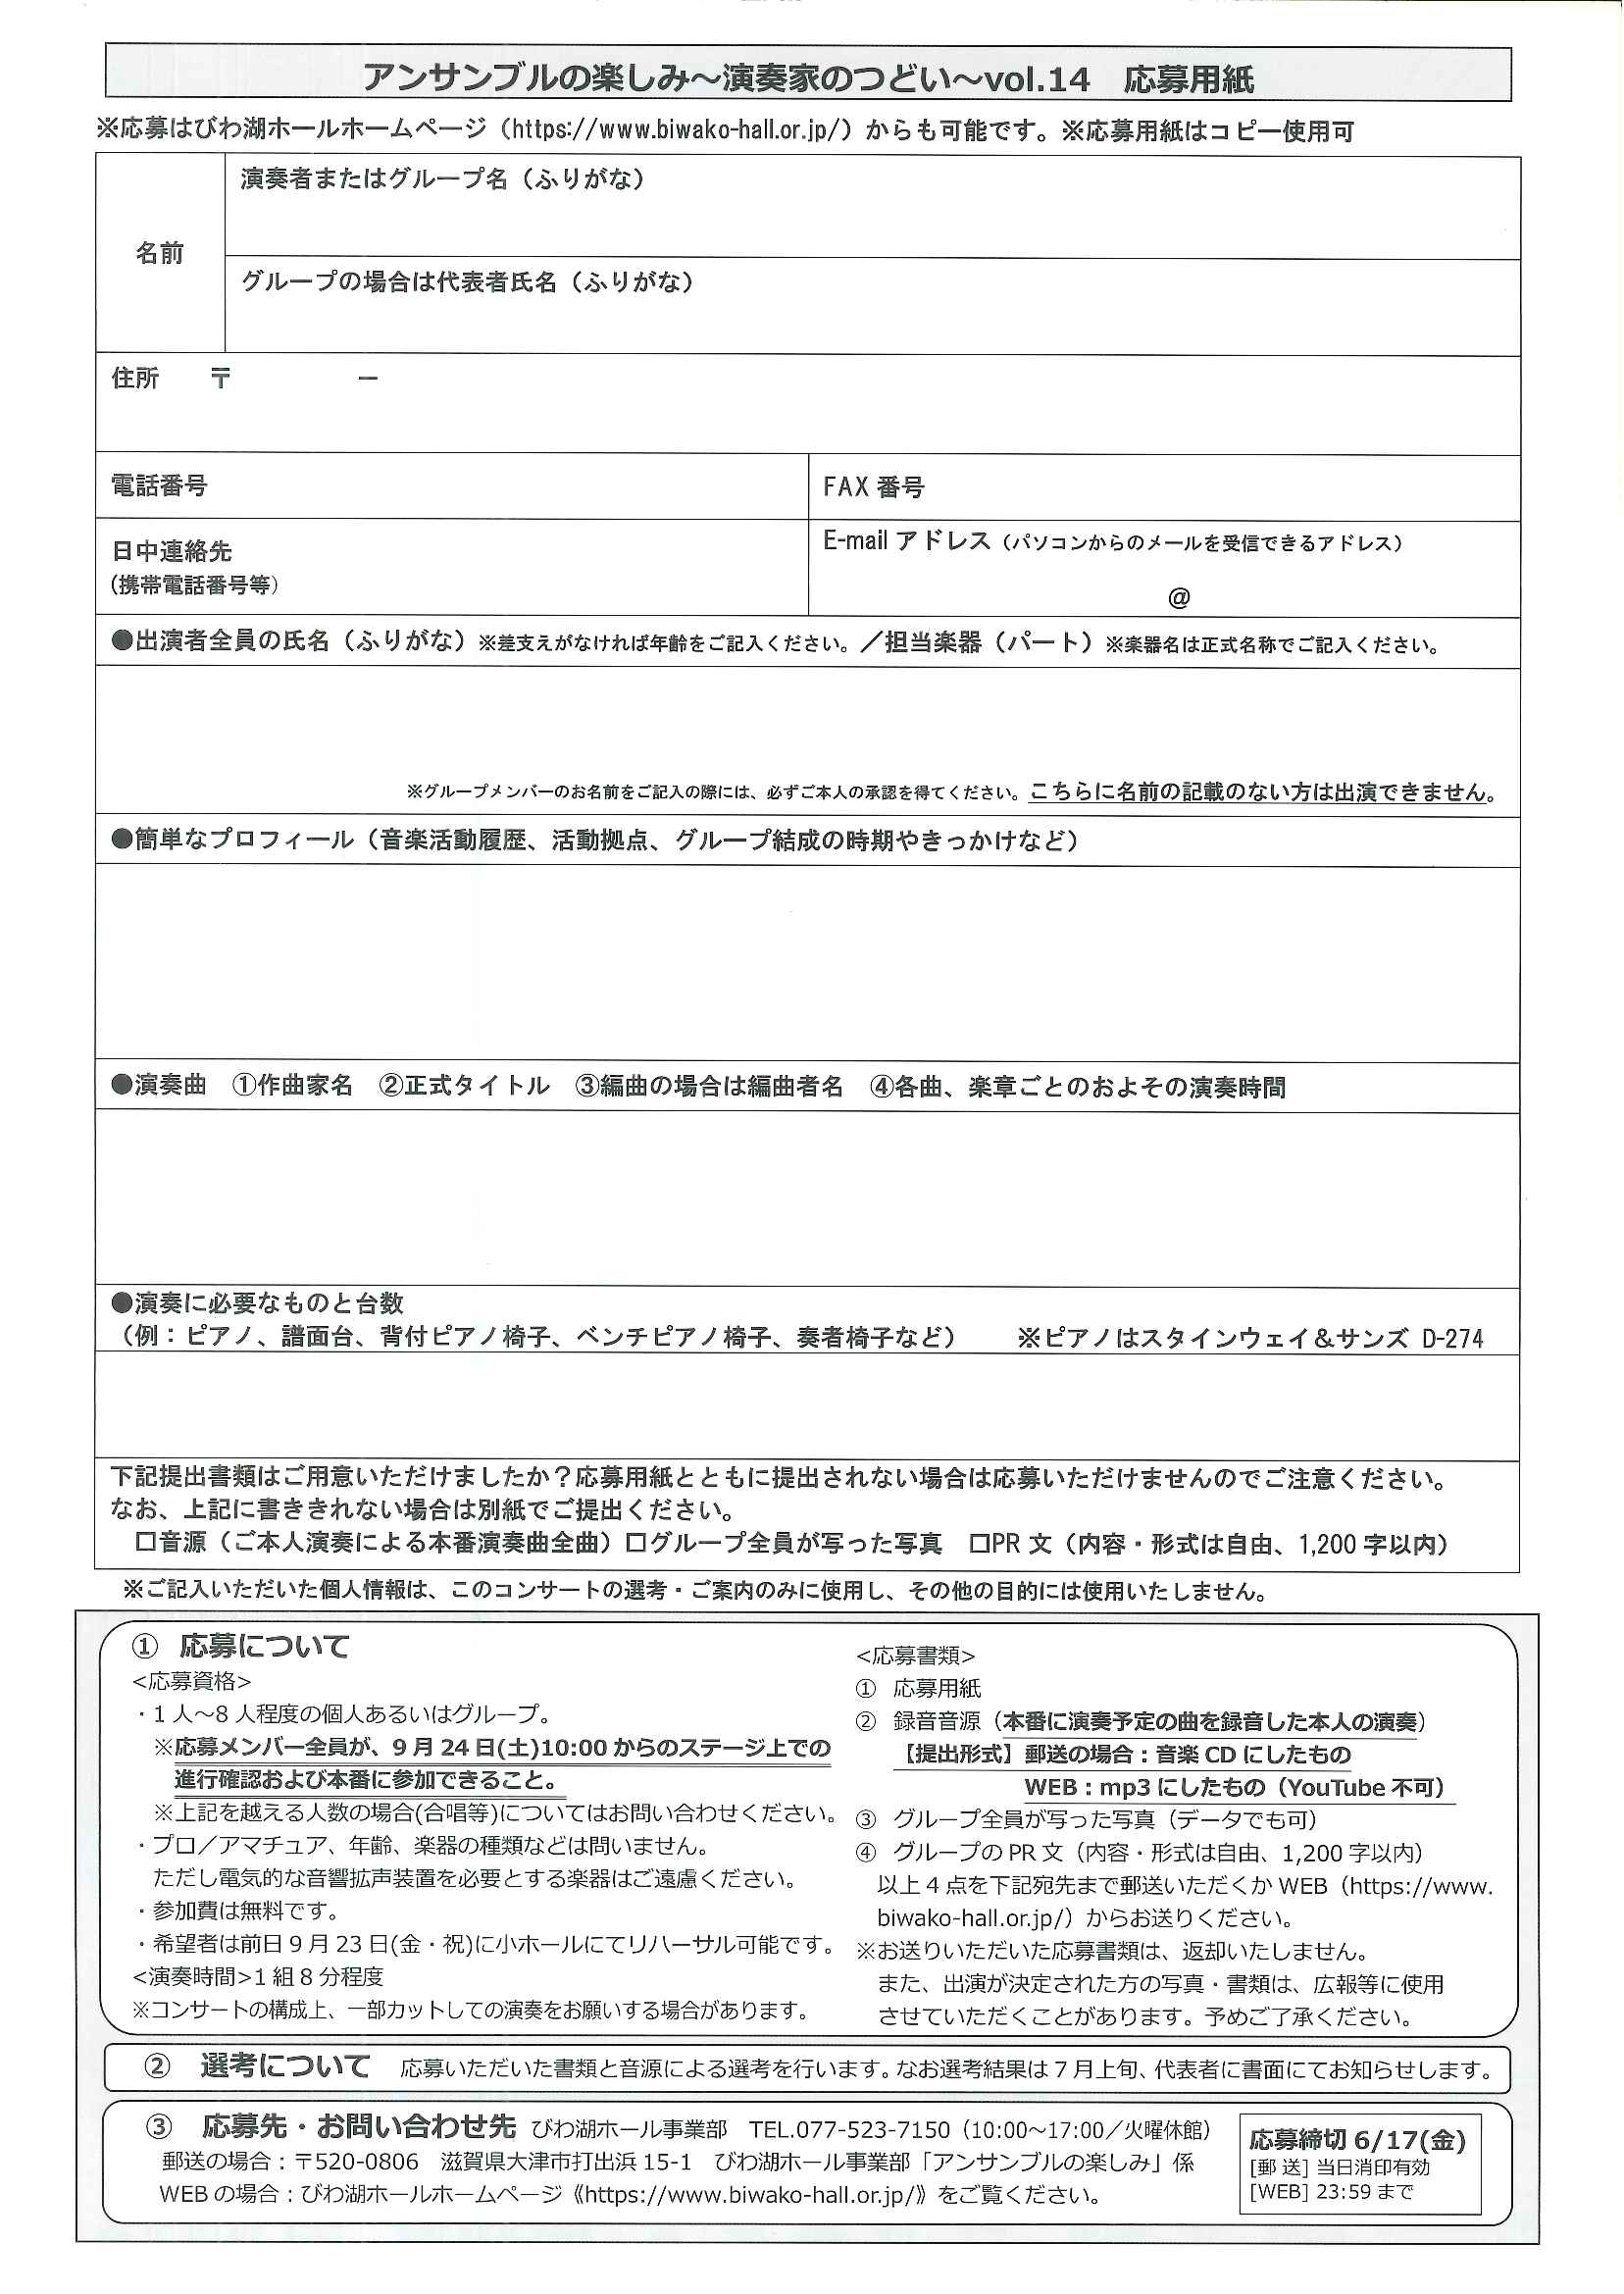 アンサンブルの楽しみ～演奏家のつどい～vol.14　応募用紙
※応募はびわ湖ホールホームページ（https://www.biwako-hall.or.jp/）からも可能です。※応募用紙はコピー使用可
名前
演奏者またはグループ名（ふりがな）
グループの場合は代表者氏名（ふりがな）
住所　　〒　　　　　－
電話番号
FAX 番号
日中連絡先
(携帯電話番号等)
E-mail アドレス（パソコンからのメールを受信できるアドレス）
@
●出演者全員の氏名（ふりがな）※差支えがなければ年齢をご記入ください。／担当楽器（パート）※楽器名は正式名称でご記入ください。
※グループメンバーのお名前をご記入の際には、必ずご本人の承認を得てください。こちらに名前の記載のない方は出演できません。
●簡単なプロフィール（音楽活動履歴、活動拠点、グループ結成の時期やきっかけなど）
●演奏曲　①作曲家名　②正式タイトル　③編曲の場合は編曲者名　④各曲、楽章ごとのおよその演奏時間
●演奏に必要なものと台数
（例：ピアノ、譜面台、背付ピアノ椅子、ベンチピアノ椅子、奏者椅子など）　　※ピアノはスタインウェイ＆サンズ D-274
下記提出書類はご用意いただけましたか？応募用紙とともに提出されない場合は応募いただけませんのでご注意ください。
なお、上記に書ききれない場合は別紙でご提出ください。
□音源（ご本人演奏による本番演奏曲全曲）□グループ全員が写った写真　□PR 文（内容・形式は自由、1,200 字以内）
※ご記入いただいた個人情報は、このコンサートの選考・ご案内のみに使用し、その他の目的には使用いたしません。
①　応募について
<応募資格>
・1 人～8 人程度の個人あるいはグループ。
※応募メンバー全員が、9 月 24 日(土)10:00 からのステージ上での
進行確認および本番に参加できること。
※上記を越える人数の場合(合唱等)についてはお問い合わせください。
・プロ／アマチュア、年齢、楽器の種類などは問いません。
ただし電気的な音響拡声装置を必要とする楽器はご遠慮ください。
・参加費は無料です。
・希望者は前日 9 月 23 日(金・祝)に小ホールにてリハーサル可能です。
<演奏時間>1 組 8 分程度
※コンサートの構成上、一部カットしての演奏をお願いする場合があります。
<応募書類>
①　応募用紙
②　録音音源（本番に演奏予定の曲を録音した本人の演奏）
【提出形式】郵送の場合：音楽 CD にしたもの
WEB：mp3 にしたもの（YouTube 不可）
③　グループ全員が写った写真（データでも可）
④　グループの PR 文（内容・形式は自由、1,200 字以内）
以上 4 点を下記宛先まで郵送いただくか WEB（https://www.
biwako-hall.or.jp/）からお送りください。
※お送りいただいた応募書類は、返却いたしません。
また、出演が決定された方の写真・書類は、広報等に使用
させていただくことがあります。予めご了承ください。
②　選考について　応募いただいた書類と音源による選考を行います。なお選考結果は 7 月上旬、代表者に書面にてお知らせします。
③　応募先・お問い合わせ先 びわ湖ホール事業部　TEL.077-523-7150（10:00～17:00／火曜休館）
郵送の場合：〒520-0806　滋賀県大津市打出浜 15-1　びわ湖ホール事業部「アンサンブルの楽しみ」係
WEB の場合：びわ湖ホールホームページ《https://www.biwako-hall.or.jp/》をご覧ください。
応募締切 6/17(金)
[郵 送] 当日消印有効
[WEB] 23:59 まで